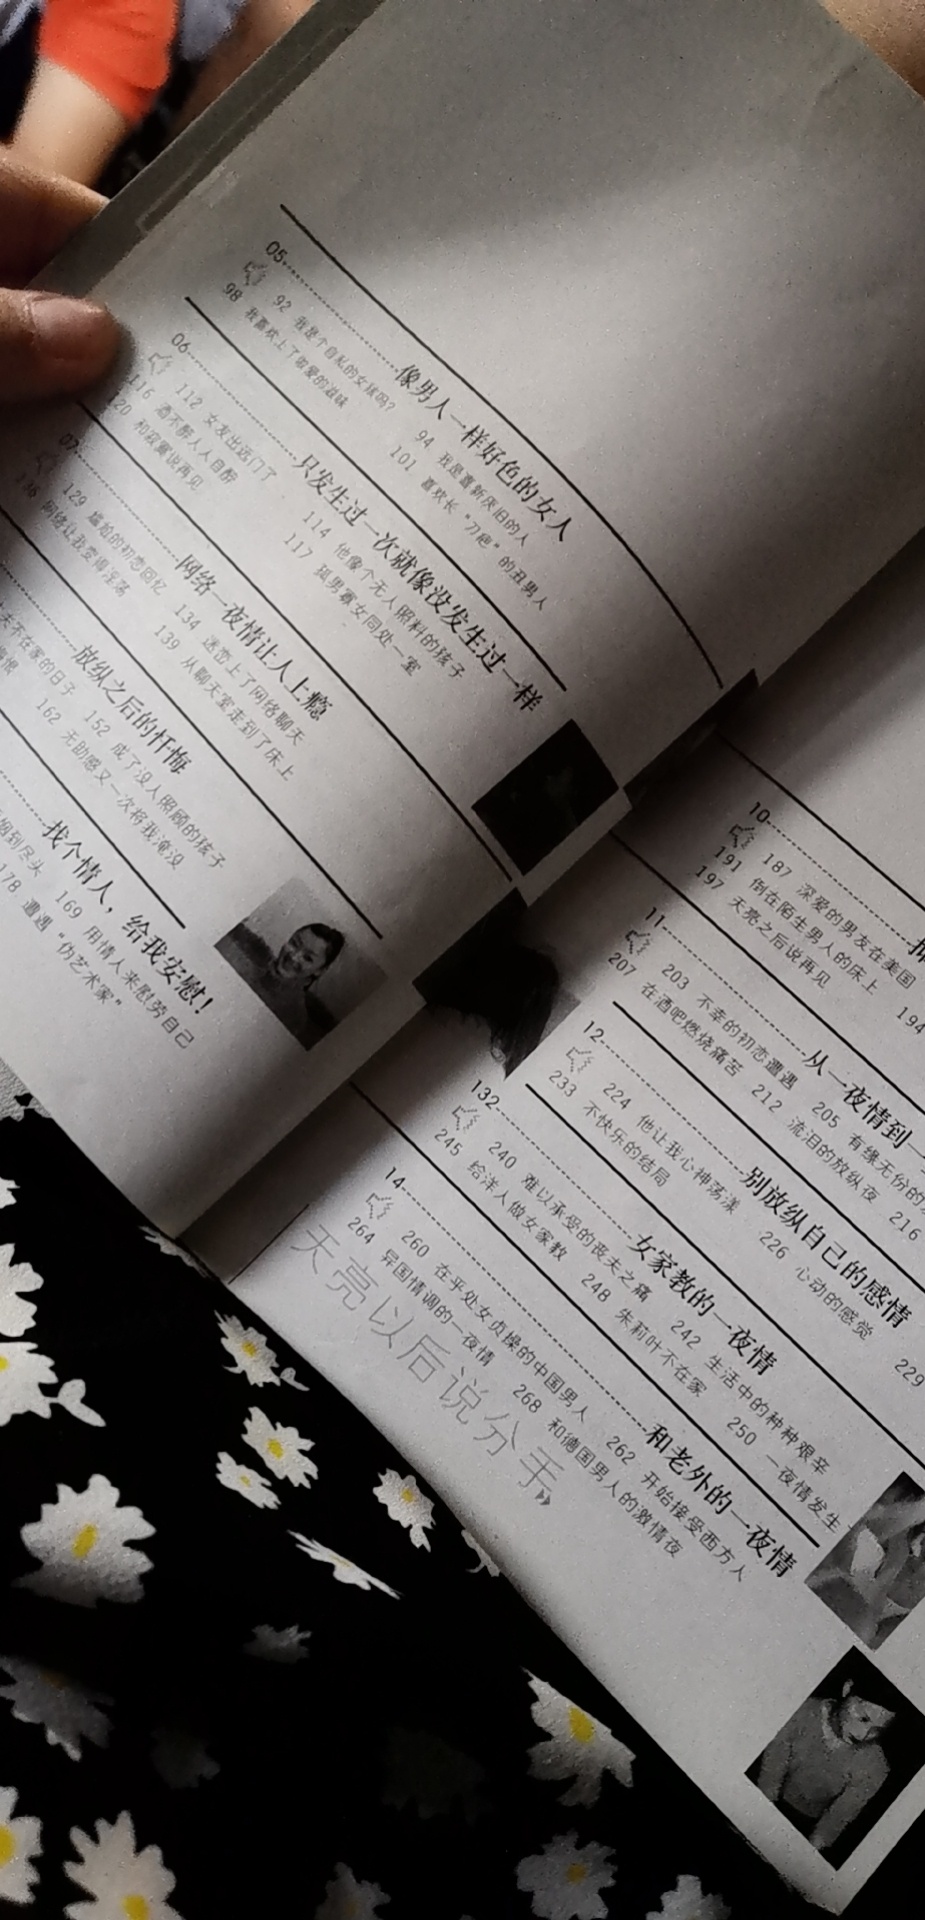 05
像男人一样好色的女人
92 我是个自私的女孩吗? 94 我是喜新厌旧的人
98 我喜欢上了做爱的滋味 101 喜欢长“刀疤”的丑男人
06
只发生过一次就像没发生过一样
112 女友出远门了 114 他像个无人照料的孩子
116 酒不醉人人自醉 117 孤男寡女同处一室
120 和寂寞说再见
07
网络一夜情让人上瘾
129 尴尬的初恋回忆 134 迷恋上了网络聊天
136 网络让我变得淫荡 139 从聊天室走到了床上
放纵之后的忏悔
夫不在家的日子 152 成了没人照顾的孩子
162 无助感又一次将我淹没
找个情人，给我安慰！
姻到尽头 169 用情人来慰劳自己
178 遭遇“伪艺术家”
10
187 深爱的男友在美国
191 倒在陌生男人的床上 194
197 天亮之后说再见
11
从一夜情到一
203 不幸的初恋遭遇 205 有缘无份的
207 在酒吧燃烧痛苦 212 流泪的放纵夜 216
12
别放纵自己的感情
224 他让我心神荡漾 226 心动的感觉 229
233 不快乐的结局
132
女家教的一夜情
240 难以承受的丧夫之痛 242 生活中的种种艰辛
245 给洋人做女家教 248 朱莉叶不在家 250 一夜情发生
14
和老外的一夜情
260 在乎处女贞操的中国男人 262 开始接受西方人
264 异国情调的一夜情 268 和德国男人的激情夜
天亮以后说分手